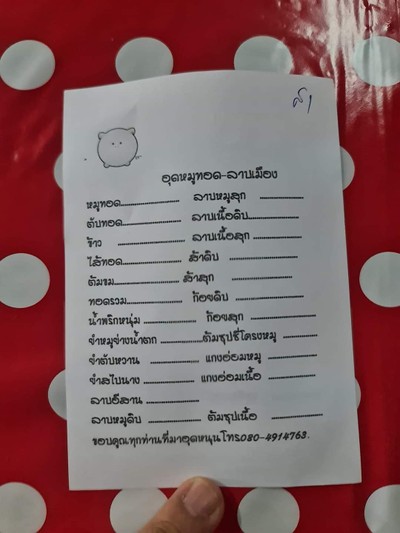 อุดหมูทอด-ลาบเมือง
หมูทอด.................... ลาบหมูสุก ..............
ตับทอด.................... ลาบเนื้อดิบ.................
ข้าว .................... ลาบเนื้อสุก .................
ไส้ทอด.................... ส้าดิบ ....................
ต้มขม.................... ส้าสุก ....................
ทอดรวม.................... ก้อยดิบ ....................
น้ำพริกหนุ่ม ................ ก้อยสุก ....................
จำหมูย่างน้ำตก ..............ต้มซุปซี่โครงหมู ........
จำตับหวาน ................ แกงอ่อมหมู ................
จำสไบนาง ................ แกงอ่อมเนื้อ ................
ลาบอีสาน ................
ลาบหมูดิบ ................ ต้มซุปเนื้อ ................
ขอบคุณทุกท่านที่มาอุดหนุนโทร.080-4914763.